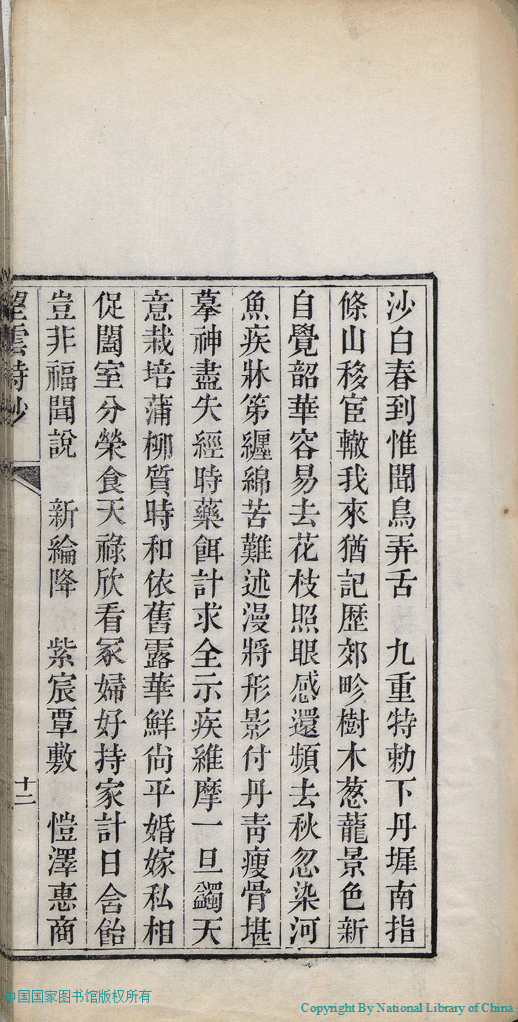 沙白春到惟聞鳥弄舌　九重特勅下丹墀南指
條山移宦轍我來猶記歴郊畛樹木葱蘢景色新
自覺韶華容易去花枝照眼感還頻去秋忽染河
魚疾牀笫纒綿苦難述漫將形影付丹靑瘦骨堪
摹神盡失經時藥餌計求全示疾維摩一旦蠲天
意栽培蒲柳質時和依舊露華鮮尙平婚嫁私相
促闔室分榮食天祿欣看冢婦好持家計日含飴
豈非福聞說　新綸降　紫宸覃敷　愷澤惠商
望雲詩鈔
十二
中国国家图书馆版权所有
Copyright By National Library of China